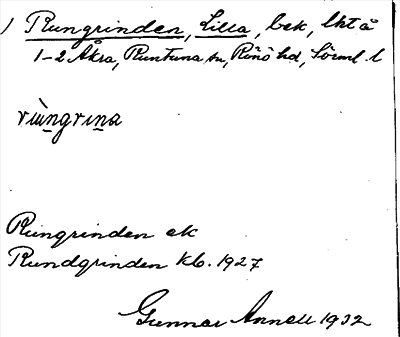 1) Rungrinden, Lilla, bek, lht å
1-2 Åkra, Runtuna sn, Rönö hd, Sörml. l
rùŋgrina
Rungrinden ek
Rundgrinden kb. 1927
Gunnar Annell 1932